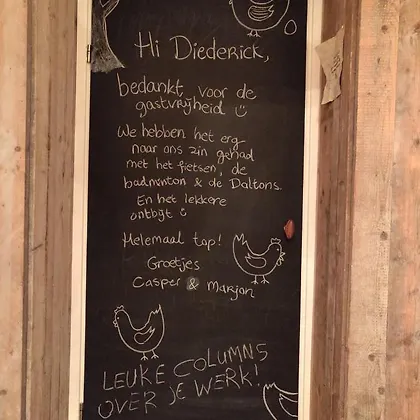 Hi Diederick,
bedankt voor de
gastvrijheid ☺
We hebben het erg
naar ons zin gehad
met het fietsen, de
badminton & de Daltons.
En het lekkere
ontbijt ☺
Helemaal top!
Groetjes
Casper & Marjan
LEUKE COLUMNS
OVER JE WERK!